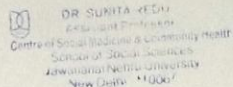 DR SUNITA REDDY
Assistant Professor
Centre of Social Medicine & Community Health
School of Social Sciences
Jawaharlal Nehru University
New Delhi